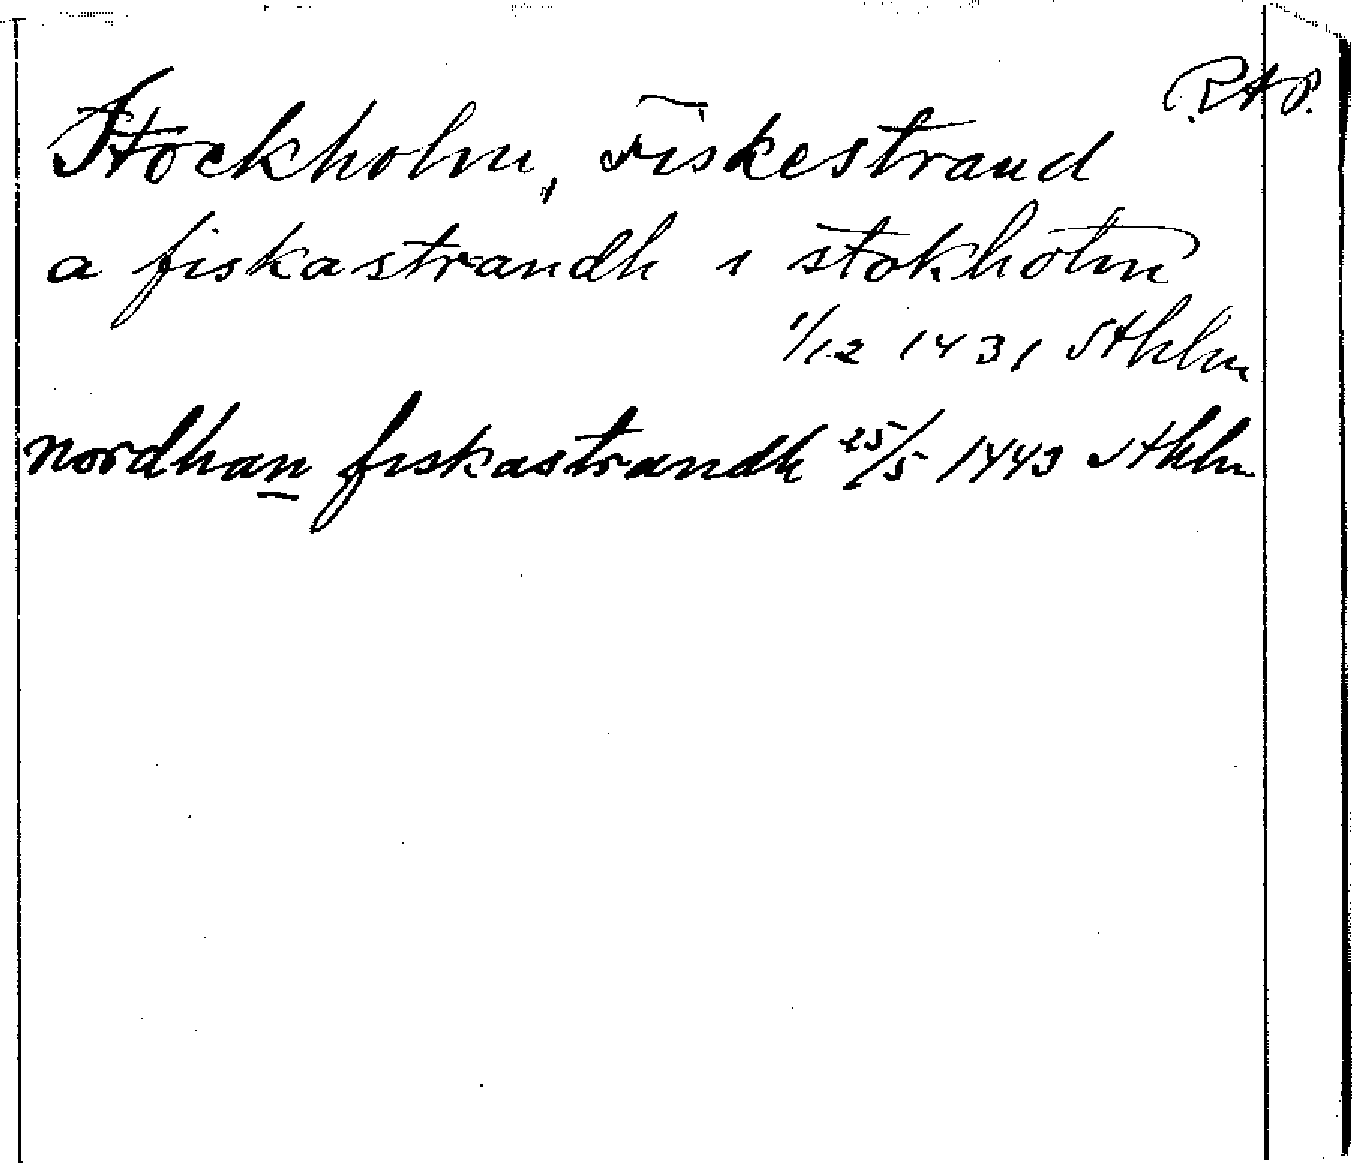 RAP.
Stockholm, Fiskestrand
a fiskastrandh i stokholm
1/12 1431 Sthlm
nordhan fiskastrandh 25/5 1443 Sthlm